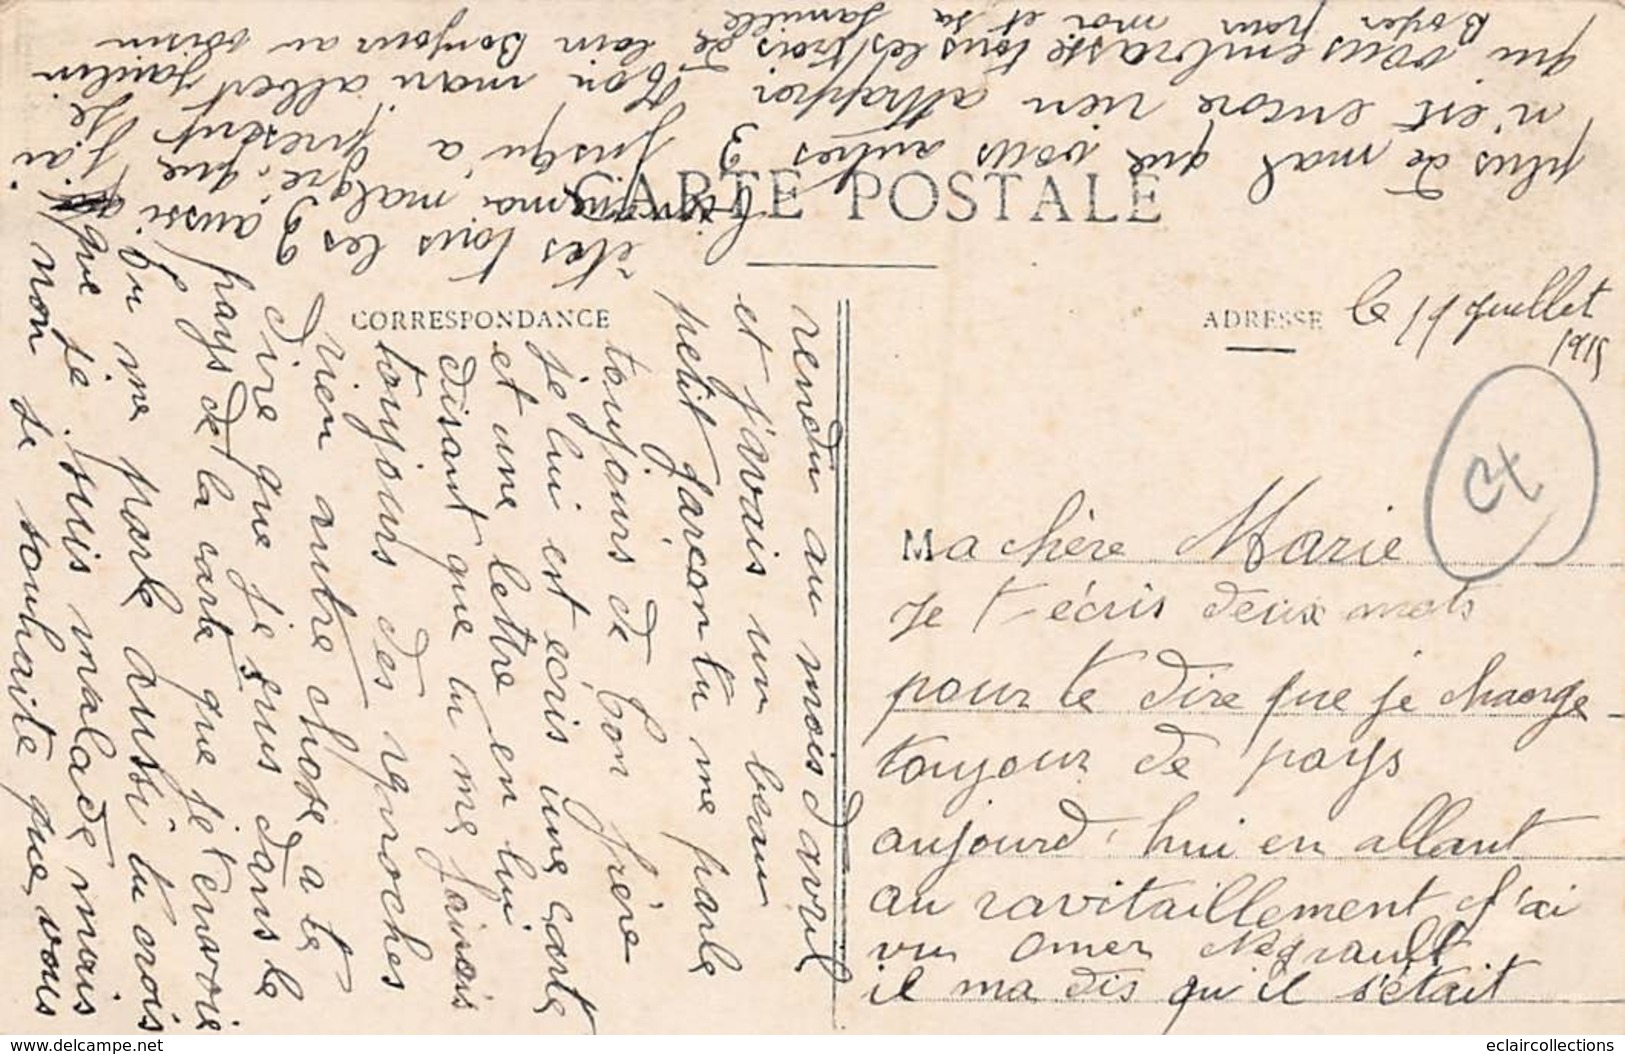 CARTE POSTALE
CORRESPONDANCE
ADRESSE
le 17 Juillet
1915
Ma chère Marie
Je t-écris deux mots
pour te dire que je change
toujour de pays
aujourd'hui en allant
au ravitaillement J'ai
vu omer Negrault
il ma dis qu'il s'était
rendu au mois d'avril
et j'avais un beau
petit garçon tu me parle
toujours de ton frère
je lui est écris une carte
et une lettre en lui
disant que tu me faisais
toujours des reproches
rien autre chose a te
dire que je suis dans le
pays de la carte que je t'envoie
tu me parle aussi tu crois
que je suis malade mais
non je souhaite que vous
êtes tous les 3 aussi que j'ai
moi malgré
plus de mal que vous autres 3 jusqu'a présent Je
n'est encore rien attrappé Ton mari albert
qui vous embrasse tous les trois de loin Bonjour au voisin
Boyer pour moi et sa famille
www.delcampe.net
eclaircollections